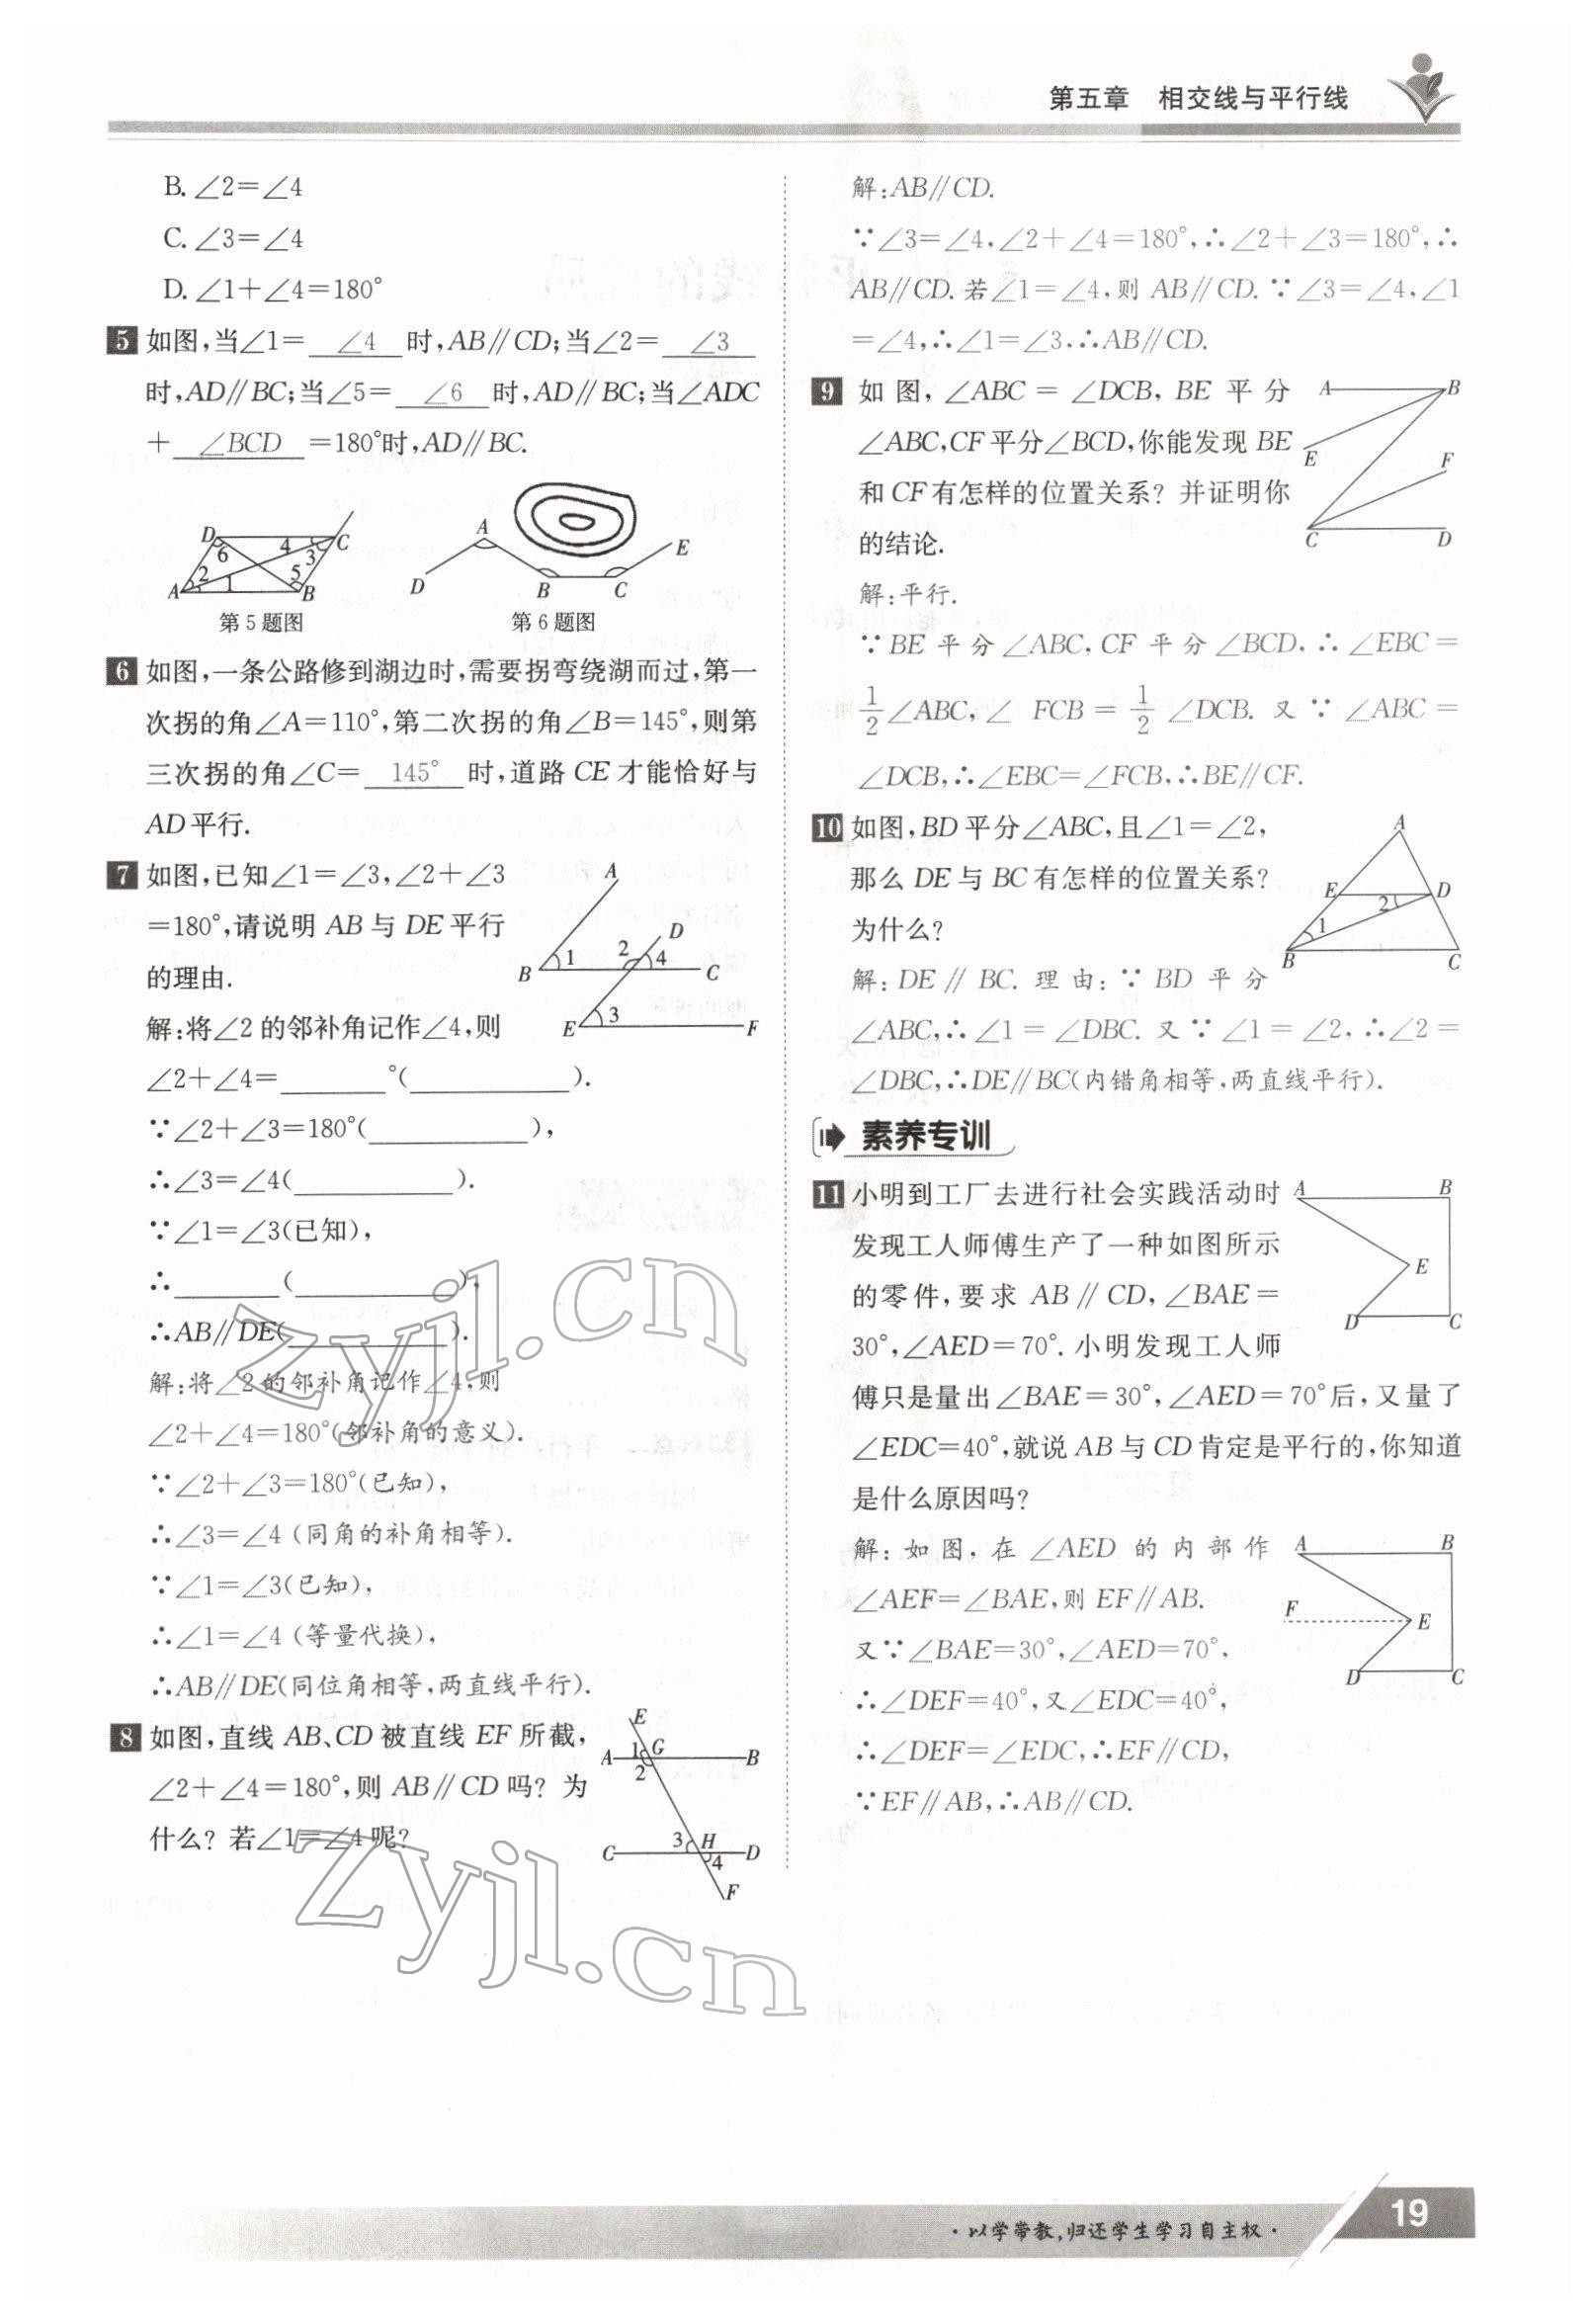 第五章 相交线与平行线
B. ∠2=∠4
C. ∠3=∠4
D. ∠1+∠4=180°
5 如图,当∠1= ∠4 时,AB∥CD;当∠2= ∠3
时,AD∥BC;当∠5= ∠6 时,AD∥BC;当∠ADC
+ ∠BCD =180°时,AD∥BC.
D 6 4 3 C
A 2 1 5 B
第5题图
A E
D B C
第6题图
6 如图,一条公路修到湖边时,需要拐弯绕湖而过,第一
次拐的角∠A=110°,第二次拐的角∠B=145°,则第
三次拐的角∠C= 145° 时,道路 CE 才能恰好与
AD平行.
7 如图,已知∠1=∠3,∠2+∠3
=180°,请说明 AB 与 DE 平行
的理由.
A
D
B 1 2 4 C
E 3 F
解:将∠2的邻补角记作∠4,则
∠2+∠4=________°(____________).
∵∠2+∠3=180°(____________),
∴∠3=∠4(____________).
∵∠1=∠3(已知),
∴________(____________),
∴AB∥DE(____________).
解:将∠2的邻补角记作∠4,则
∠2+∠4=180°(邻补角的意义).
∵∠2+∠3=180°(已知),
∴∠3=∠4 (同角的补角相等).
∵∠1=∠3(已知),
∴∠1=∠4 (等量代换),
∴AB∥DE(同位角相等,两直线平行).
8 如图,直线 AB、CD 被直线 EF 所截,
∠2+∠4=180°,则 AB∥CD 吗? 为
什么? 若∠1=∠4呢?
E
A 1 G B
2
C 3 H D
4
F
解:AB∥CD.
∵∠3=∠4,∠2+∠4=180°,∴∠2+∠3=180°,∴
AB∥CD. 若∠1=∠4,则 AB∥CD. ∵∠3=∠4,∠1
=∠4,∴∠1=∠3,∴AB∥CD.
9 如图,∠ABC=∠DCB,BE 平分
∠ABC,CF平分∠BCD,你能发现 BE
和 CF有怎样的位置关系? 并证明你
的结论.
A B
E F
C D
解:平行.
∵BE 平分∠ABC,CF 平分∠BCD,∴∠EBC=
1/2∠ABC,∠FCB=1/2∠DCB. 又∵∠ABC=
∠DCB,∴∠EBC=∠FCB,∴BE∥CF.
10 如图,BD平分∠ABC,且∠1=∠2,
那么 DE与 BC有怎样的位置关系?
为什么?
A
E 2 D
1
B C
解:DE∥BC. 理由:∵BD 平分
∠ABC,∴∠1=∠DBC. 又∵∠1=∠2,∴∠2=
∠DBC,∴DE∥BC(内错角相等,两直线平行).
素养专训
11 小明到工厂去进行社会实践活动时
发现工人师傅生产了一种如图所示
的零件,要求 AB∥CD,∠BAE=
30°,∠AED=70°. 小明发现工人师
傅只是量出∠BAE=30°,∠AED=70°后,又量了
∠EDC=40°,就说 AB 与 CD 肯定是平行的,你知道
是什么原因吗?
A B
E
D C
解:如图,在∠AED 的内部作
∠AEF=∠BAE,则 EF∥AB.
又∵∠BAE=30°,∠AED=70°,
∴∠DEF=40°,又∠EDC=40°,
∴∠DEF=∠EDC,∴EF∥CD,
∵EF∥AB,∴AB∥CD.
A B
F E
D C
zyjl.cn
zyjl.cn
·以学带教,归还学生学习自主权·
19